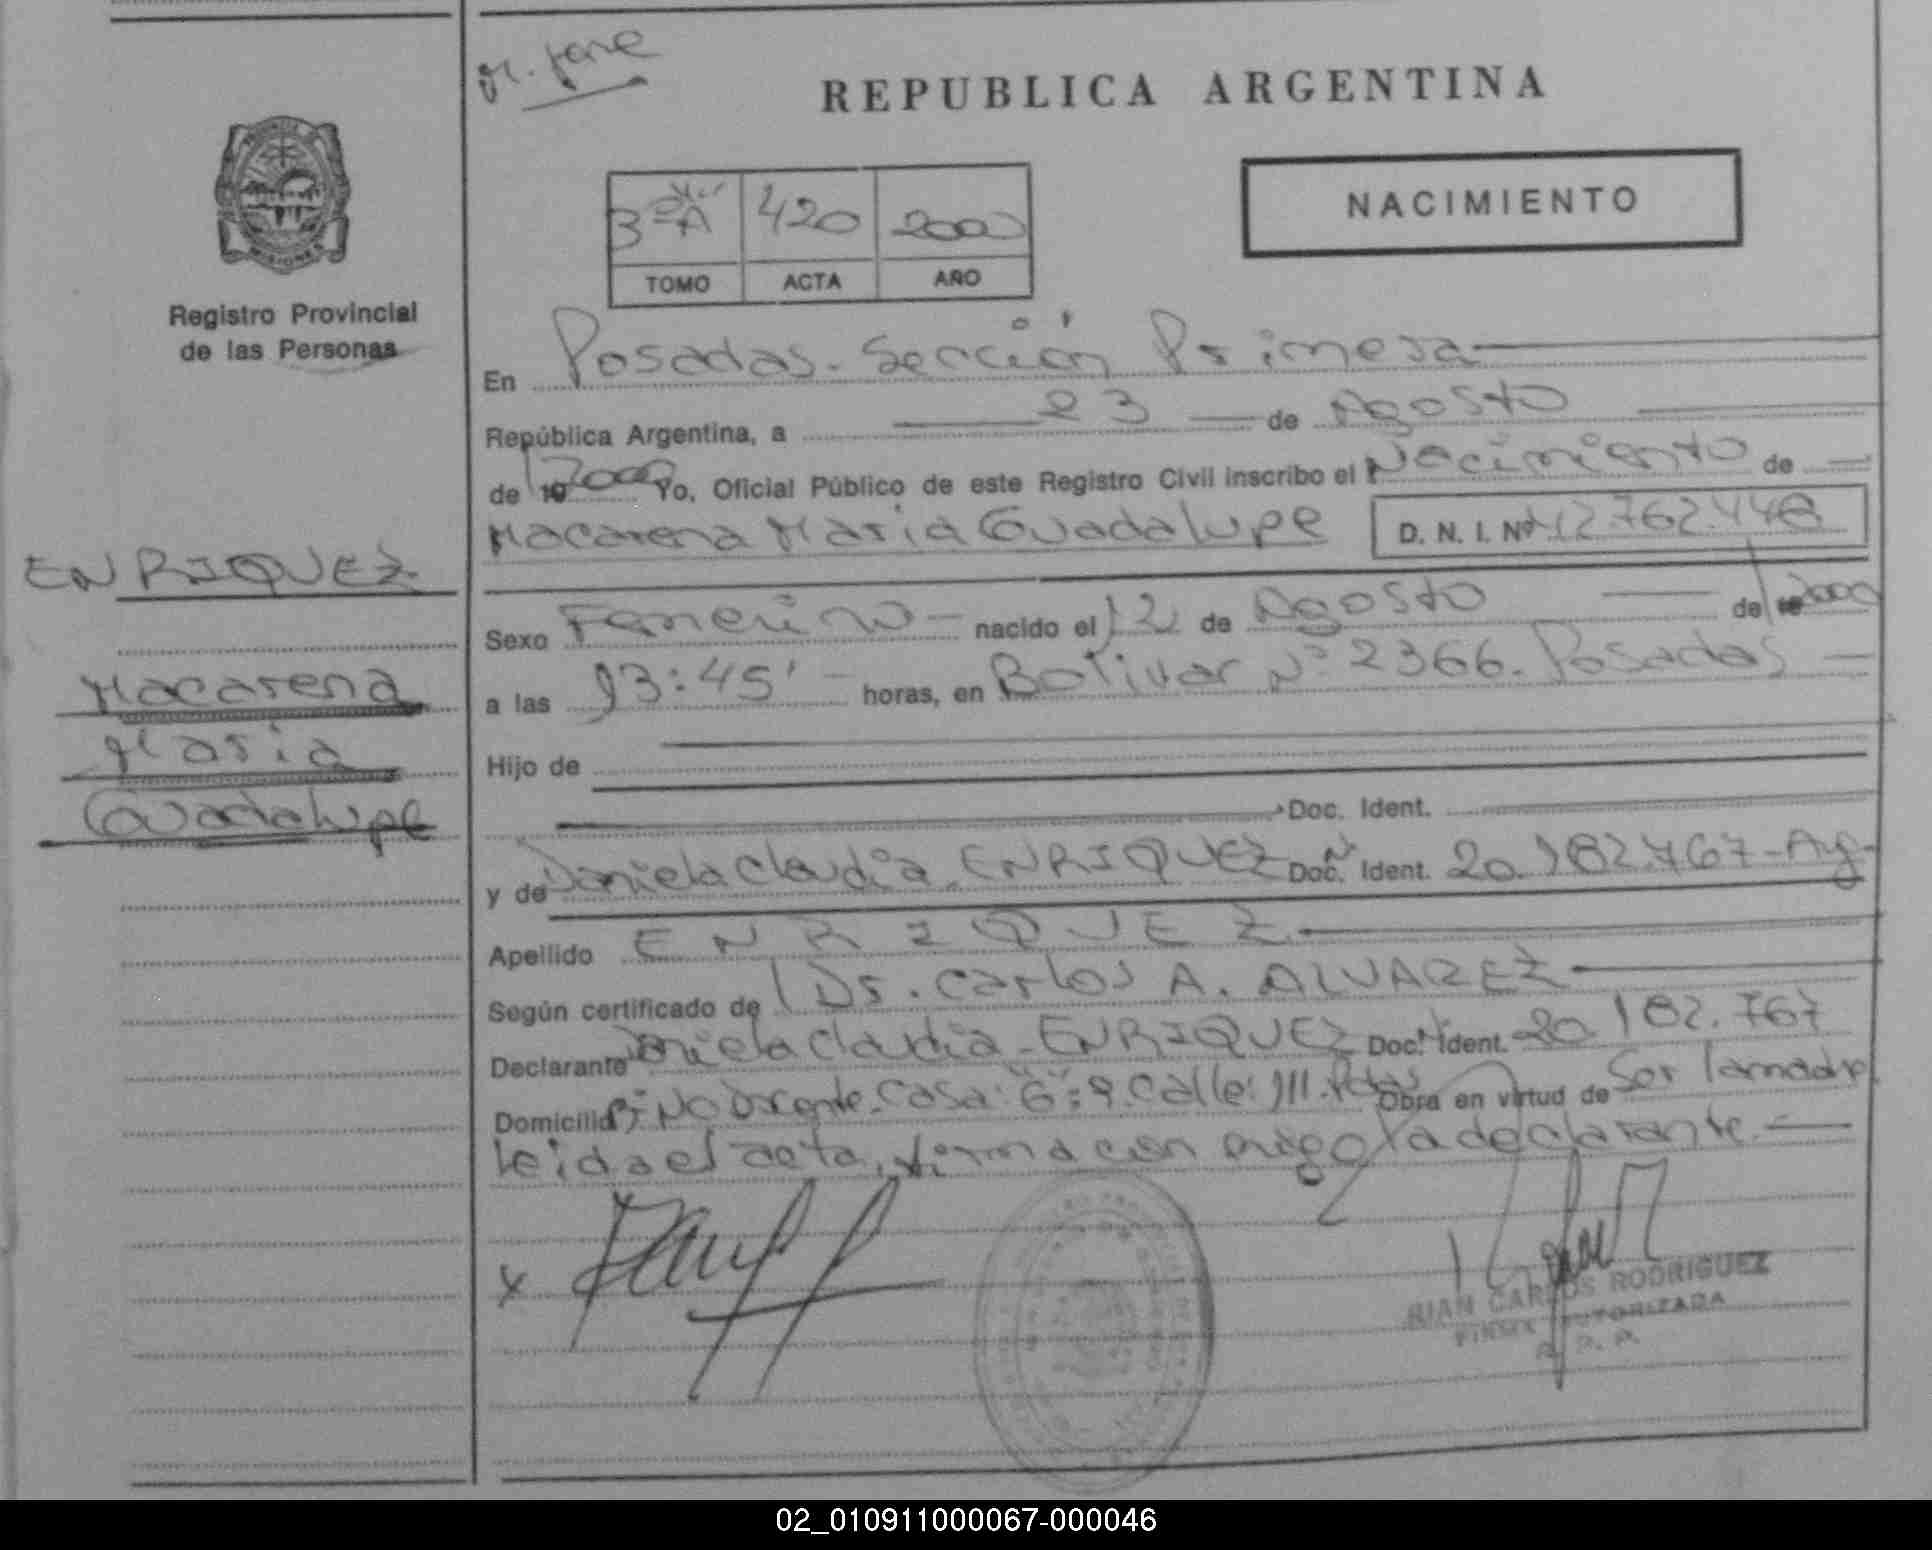 REPUBLICA ARGENTINA
NACIMIENTO
3ª A 420 2000
TOMO ACTA AÑO
Registro Provincial
de las Personas
ENRIQUEZ
Macarena
Maria
Guadalupe
En Posadas. Sección Primera
República Argentina, a 23 de Agosto
de 2000 Yo, Oficial Público de este Registro Civil inscribo el Nacimiento de
Macarena Maria Guadalupe D. N. I. Nº 42.762.448
Sexo Femenino nacido el 12 de Agosto de 2000
a las 13:45' horas, en Bolivar Nº 2366. Posadas
Hijo de
Doc. Ident.
y de Daniela Claudia ENRIQUEZ Doc. Ident. 20.182.767-Ag-
Apellido ENRIQUEZ
Según certificado de Dr. Carlos A. ALVAREZ
Declarante Daniela Claudia ENRIQUEZ Doc. Ident. 20.182.767
Domicilio Casa: "G": 9. Calle: 111. Pdas Obra en virtud de Ser la madre
Leida el acta, firma con migo la declarante.
X
CARLOS RODRIGUEZ
FIRMA AUTORIZADA
R. P. P.
02_010911000067-000046